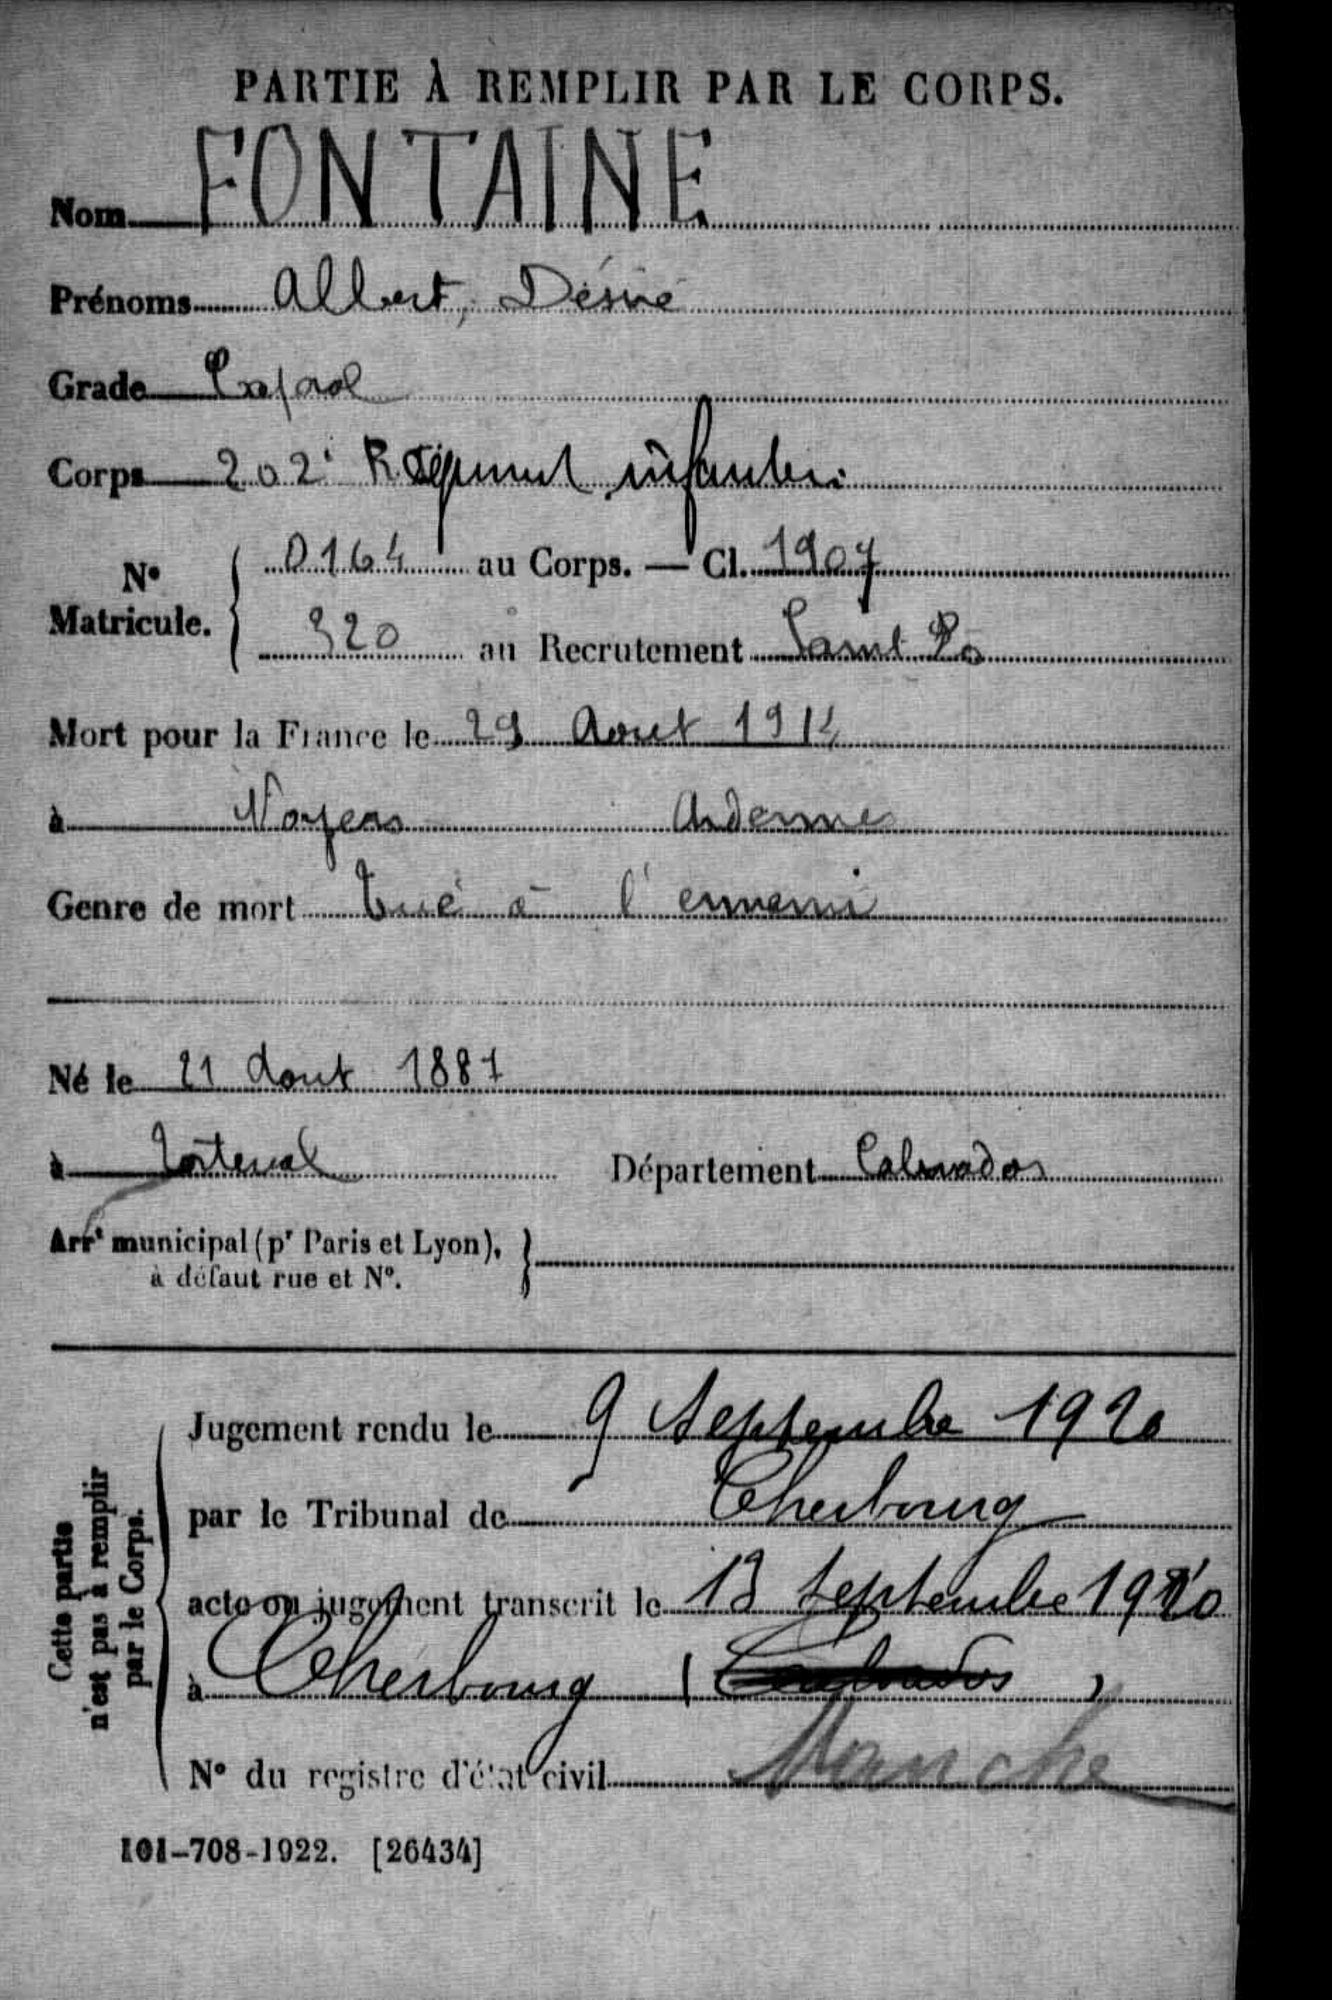 PARTIE À REMPLIR PAR LE CORPS.
Nom FONTAINE
Prénoms Albert, Désiré
Grade Caporal
Corps 202e Régiment infanterie
N° Matricule. 0164 au Corps. — Cl. 1907
320 au Recrutement Saint Lo
Mort pour la France le 29 Aout 1914
à Noyers Ardennes
Genre de mort Tué à l'ennemi
Né le 21 Aout 1887
à Torteval Département Calvados
Arrt municipal (pr Paris et Lyon),
à défaut rue et N°.
Cette partie
n'est pas à remplir
par le Corps.
Jugement rendu le 9 Septembre 1920
par le Tribunal de Cherbourg
acte ou jugement transcrit le 13 Septembre 1920
à Cherbourg (Calvados)
Manche
N° du registre d'état civil
101-708-1922. [26434]